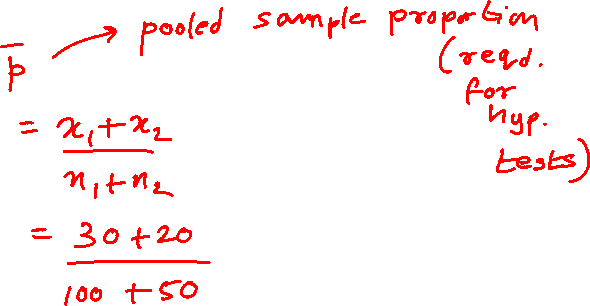 p̅ → pooled sample proportion
(reqd.
for
hyp.
tests)
= x₁+x₂
n₁+n₂
= 30+20
100 +50